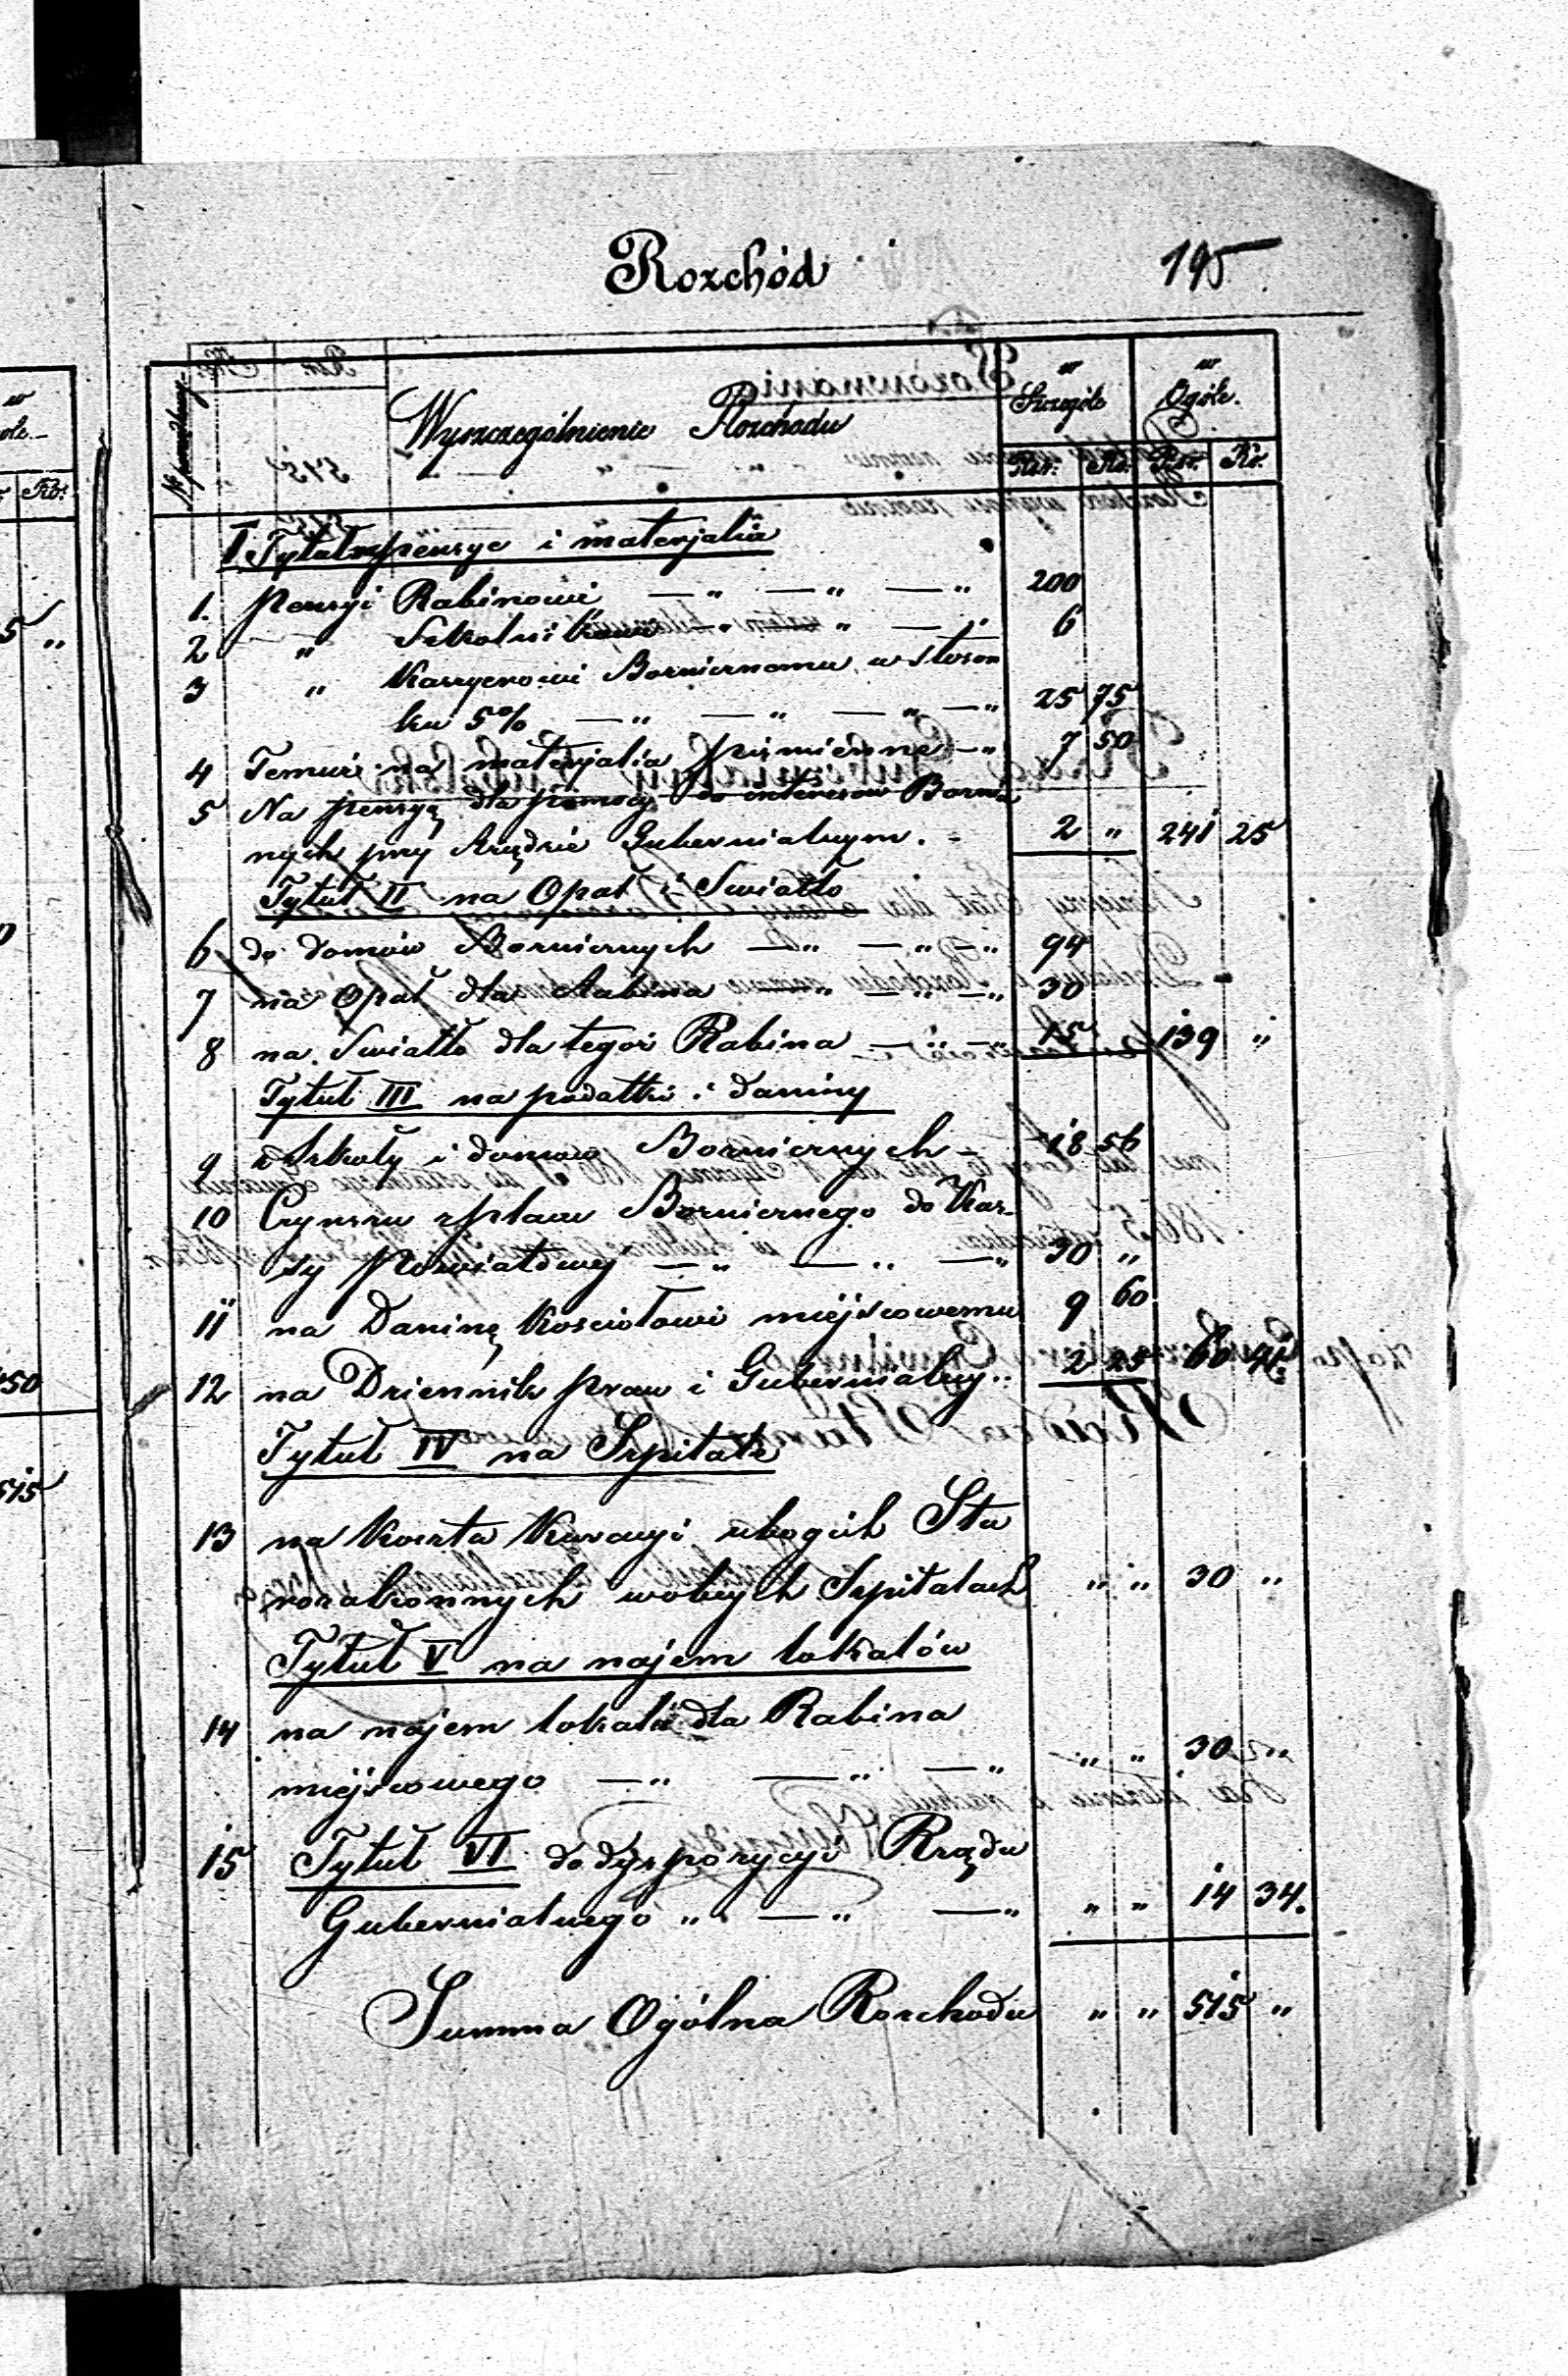 Rozchód
195
№ porządkowy
Wyszczególnienie Rozchodu
w Szczególe
w Ogóle.
Rsr. Ko. Rsr. Ko.
I Tytuł na pensye i materjalia
1. pensyi Rabinowi — „ — „ — „ 200
2 „ Szkolnikowi — „ — „ 6
3 „ Kassyerowi Bożniczemu w stosun
ku 5% — „ — „ — „ — „ 25 75
4 Temuż na materjalia piśmienne — „ 7 50
5 Na pensyę dla pomocy do interesów Bożni
nych przy Rządzie Gubernialnym. - 2 „ 241 25
Tytuł II na Opał i Swiatło
6 do domów Bożnicznych — „ — „ — „ 94
7 na Opał dla Rabina — „ — „ — „ 30
8 na Swiatło dla tegoż Rabina — „ — „ 15 139 „
Tytuł III na podatki i daniny
9 z Szkoły i domow Bożnicznych - 18 56
10 Czynszu z placu Bożnicznego do Kas-
sy Powiatowej — „ — „ — „ 30 „
11 na Daninę Kościołowi miejscowemu 9 60
12 na Dziennik praw i Gubernialny „ 2 25 60 41
Tytuł IV na Szpitale
13 na koszta kuracyi ubogich Sta
rozakonnych w obcych Szpitalach „ „ 30 „
Tytuł V na najem lokalów
14 na najem lokalu dla Rabina
miejscowego — „ — „ — „ „ „ 30 „
15 Tytuł VI do dyspozycyi Rządu
Gubernialnego „ — „ — „ „ „ 14 34.
Summa Ogólna Rozchodu „ „ 515 „